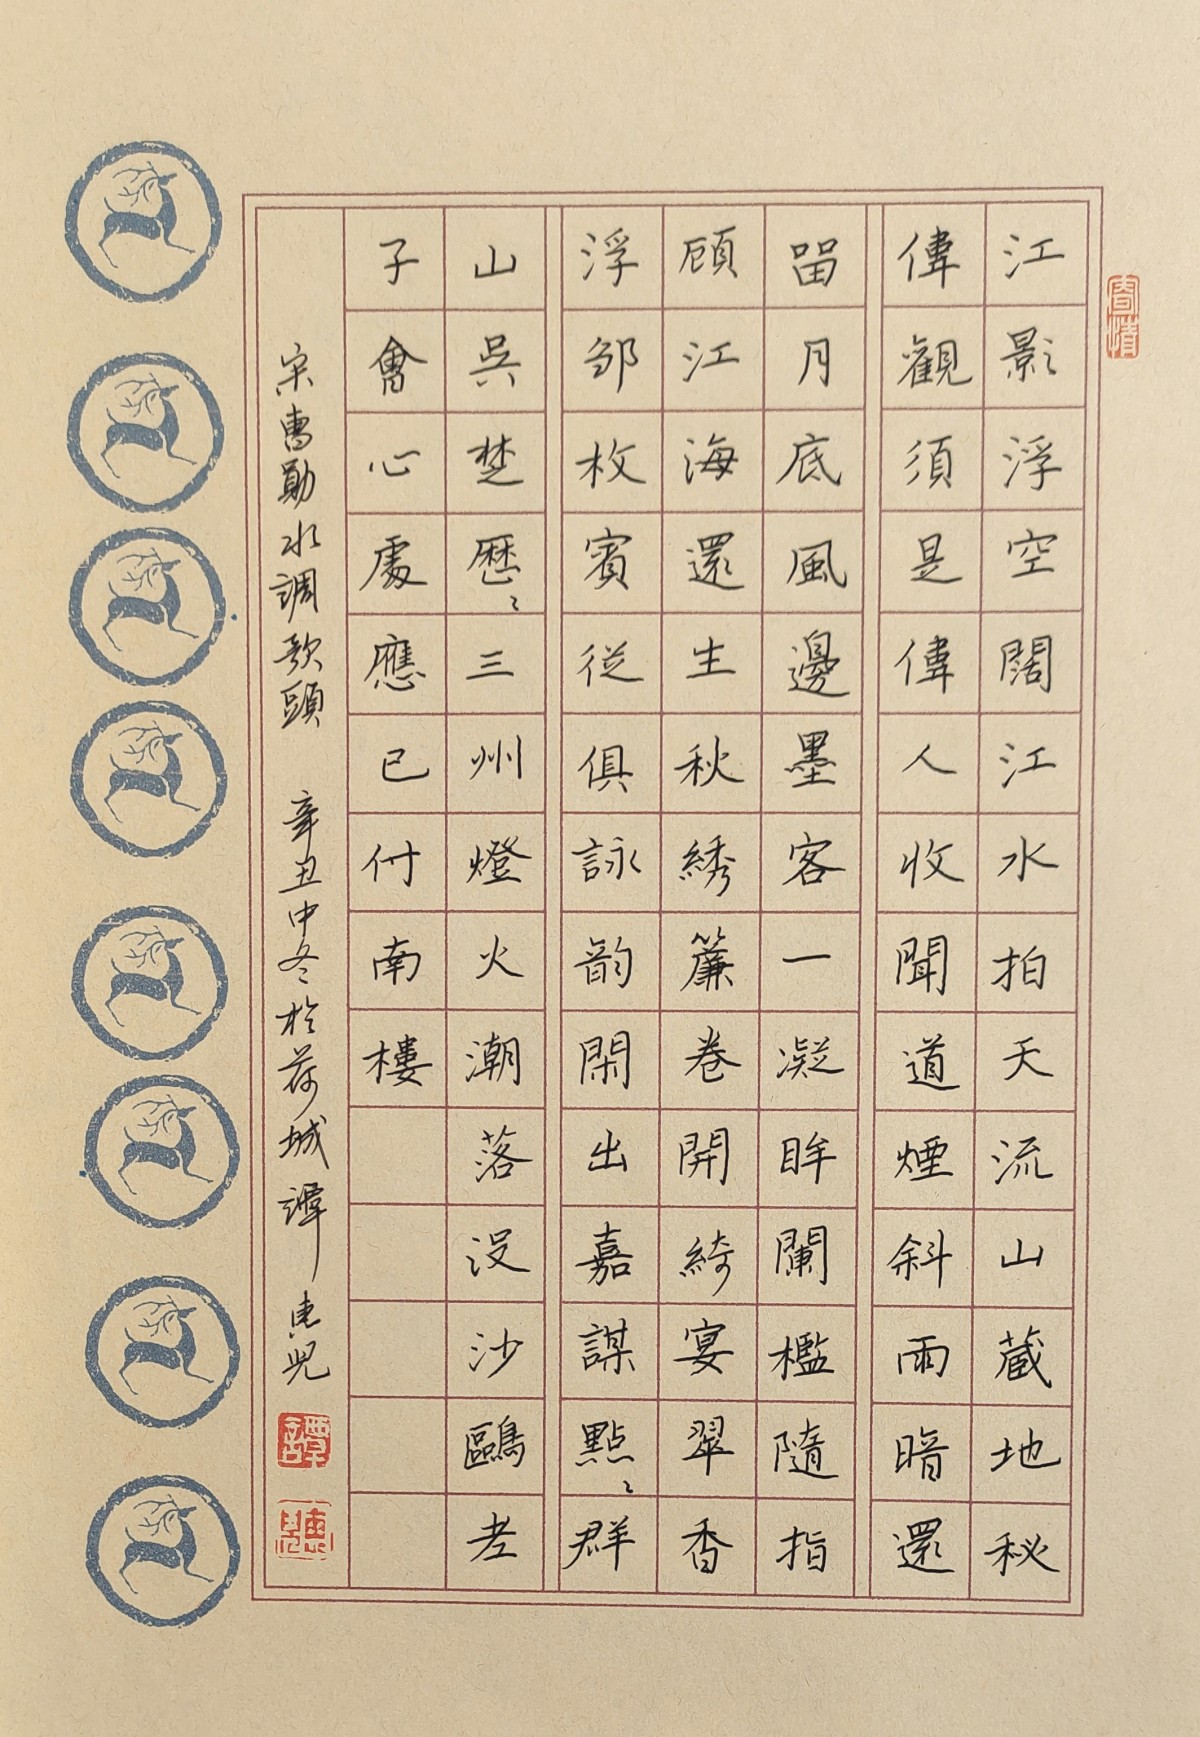 江影浮空闊江水拍天流山藏地秘
偉觀須是偉人收聞道煙斜雨暗還
畱月底風邊墨客一凝眸闌檻隨指
顧江海還生秋綉簾卷開綺宴翠香
浮鄒枚賓從俱詠韵閑出嘉謀點〻群
山吳楚歷〻三州燈火潮落沒沙鷗老
子會心處應已付南樓
宋曹勛水調歌頭 辛丑中冬於荷城譚惠兒